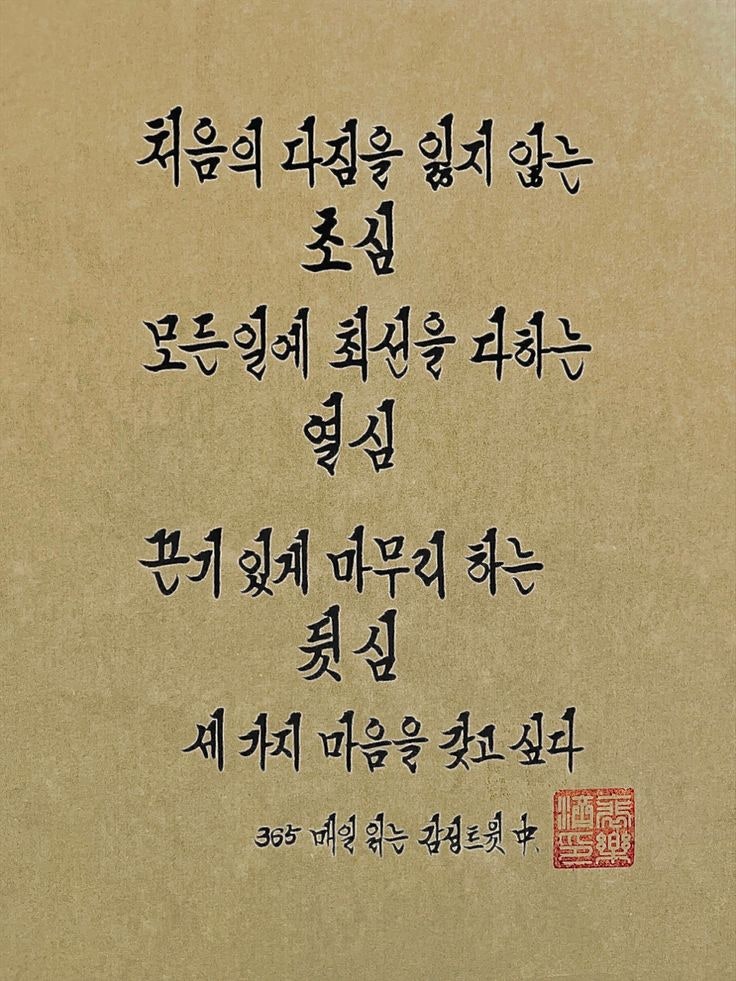 처음의 다짐을 잃지 않는
초심
모든일에 최선을 다하는
열심
끈기 있게 마무리 하는
뒷심
세 가지 마음을 갖고 싶다
365 매일 읽는 감성트윗 中.